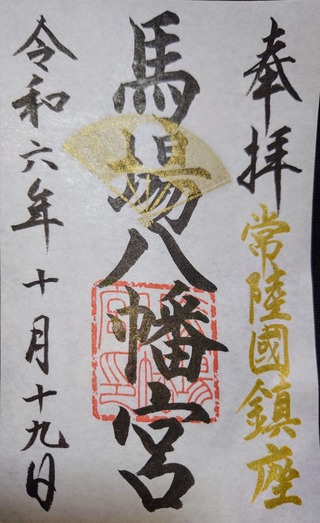 奉拝
常陸國鎮座
馬場八幡宮
令和六年十月十九日